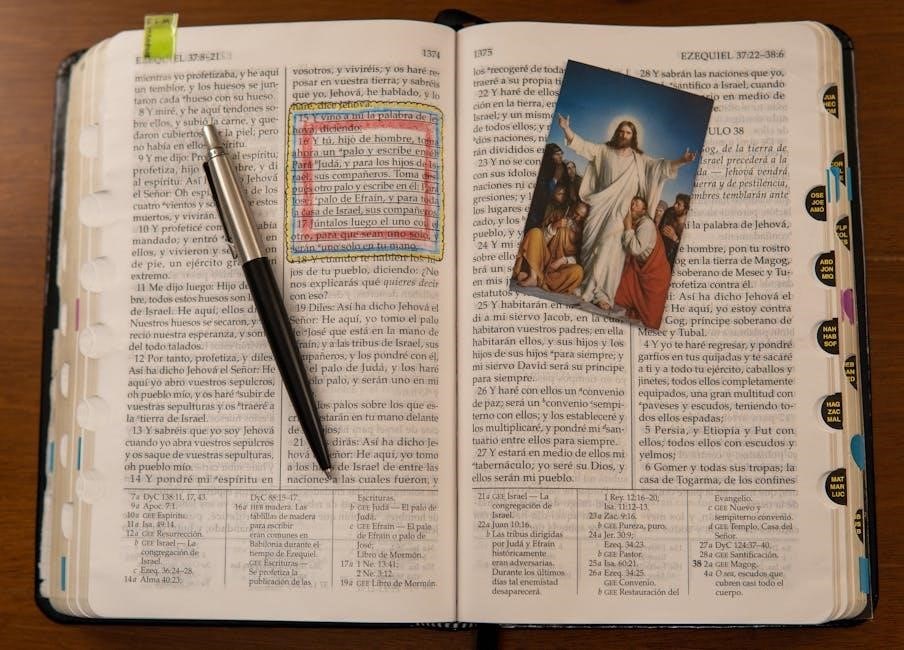 EZEQUIEL 37:8–21
1374
mientras yo profetizaba, y he aquí
un temblor, y los huesos se jun-
taron cada hueso con su hueso.
8 Y miré, y he aquí tendones so-
bre ellos, y subió la carne, y que-
daron cubiertos por la piel; pero
no había en ellos espíritu.
9 Y me dijo: Profetiza al espíritu;
profetiza, hijo de hombre, y di
al espíritu: Así ha dicho Jehová el
Señor: Oh espíritu,
cuatro vientos y
muertos, y vivirán.
10 Y profeticé como
mandado; y entró
ellos, y vivieron y
de pie, un ejército
extremo.
11 Me dijo luego: Hijo de
bre, todos estos huesos son la
de Israel. He aquí, ellos
Nuestros huesos se secaron, y
reció nuestra esperanza, y somos
del todo talados.
12 Por tanto, profetiza, y diles:
Así ha dicho Jehová el Señor: He
aquí yo abro vuestros sepulcros,
oh pueblo mío, y os haré subir de
vuestras sepulturas y os traeré a
la tierra de Israel.
13 Y sabréis que yo soy Jehová
cuando yo abra vuestros sepulcros
y os saque de vuestras sepulturas,
oh pueblo mío.
14 Y pondré mi espíritu en
vosotros, y viviréis, y os haré re-
posar en vuestra tierra; y sabréis
que yo, Jehová, he hablado, y lo
haré, dice Jehová.
15 Y vino a mí la palabra de Je-
hová, diciendo:
16 Y tú, hijo de hombre, toma
ahora un palo y escribe en él:
Para Judá, y para los hijos de Is-
rael, sus compañeros. Toma des-
pués otro palo y escribe en él: Para
José, palo de Efraín, y para toda
la casa de Israel, sus compañeros.
17 Júntalos luego el uno con el
otro, para que sean uno solo, y
serán uno solo en tu mano.
18 Y cuando te hablen los hi-
jos de tu pueblo, diciendo: ¿No
nos explicarás qué quieres decir
con eso?
19 Diles: Así ha dicho Jehová el
Señor: He aquí, yo tomo el palo
de José que está en la mano de
Efraín, y a las tribus de Israel, sus
compañeros, y los pondré con él,
el palo de Judá, y los haré
palo, y serán uno en mi
los palos sobre los que es-
estarán en tu mano delante
de
21 dirás: Así ha dicho Je-
hová el Señor: He
aquí, yo tomo a los hijos de Israel de entre las
naciones a las cuales fueron, y
7a DyC 138:11, 17, 43.
9a Apoc. 7:1.
10a GEE Espíritu.
11a Isa. 49:14.
12a GEE Resurrección.
b GEE Israel — La
congregación de
Israel.
c Ezeq. 36:24–28.
14a Alma 40:23;
DyC 88:15–17.
16a HEB madera. Las
tablillas de madera
para escribir
eran comunes en
Babilonia durante el
tiempo de Ezequiel.
GEE Escrituras —
Se profetiza la
publicación de las
Escrituras.
b GEE Judá — El palo de
Judá.
c GEE Efraín — El palo
de Efraín o palo de
José;
Libro de Mormón.
17a 1 Ne. 13:41;
2 Ne. 3:12.
19a GEE Libro de Mormón.
1375
EZEQUIEL 37:22–38:6
los recogeré de todas
traeré a su propia
22 Y haré de ellos
ción en la tierra, en
de Israel; y un mismo
de todos ellos; y
dos naciones, ni
rán divididos en
23 Y no se
con sus ídolos
naciones ni
gresiones; y
los lugares
cado, y los
pueblo, y
24 Y mi
sobre ellos
brá un
en mis
estatutos y
25 Y habitarán en
di a mi siervo Jacob, en la cual
habitaron vuestros padres; en ella
habitarán ellos, y sus hijos y los
hijos de sus hijos para siempre; y
mi siervo David será su príncipe
para siempre.
26 Y haré con ellos un convenio
de paz; será un convenio sempi-
terno con ellos; y los estableceré y
los multiplicaré, y pondré mi san-
tuario entre ellos para siempre.
27 Y estará en medio de ellos mi
tabernáculo; yo seré su Dios, y
ellos serán mi pueblo.
28 Y sabrán las naciones que yo,
santifico a Israel, cuando
en medio de
siempre.
CAPÍTULO 38
Gog, de la tierra de
Israel precederá a la
— Jehová vendrá
guerra y de pestilencia,
hombres temblarán ante
la palabra de Jehová,
hombre, pon tu rostro
en la tierra de Magog,
soberano de Mesec y Tu-
profetiza contra él.
Así ha dicho Jehová el
He aquí, yo estoy contra
Gog, príncipe soberano de
Mesec y Tubal.
4 Y yo te haré regresar, y pondré
garfios en tus quijadas y te sacaré
a ti y a todo tu ejército, caballos y
jinetes, todos ellos completamente
equipados, una gran multitud con
paveses y escudos, teniendo to-
dos ellos espadas;
5 Persia, y Etiopía y Fut con
ellos; todos ellos con escudos y
yelmos;
6 Gomer y todas sus tropas; la
casa de Togarma, de los confines
21a GEE Israel — La
congregación de
Israel.
22a Juan 10:16.
b Las tribus dirigidas
por Judá y Efraín
históricamente
eran adversarias.
Durante los últimos
días tal enemistad
desaparecerá.
1 Rey. 12:16–20;
Isa. 11:12–13.
23a Zac. 9:16.
b GEE Pureza, puro.
24a Jer. 30:9;
Ezeq. 34:23.
b GEE Pastor.
25a Isa. 60:21.
26a Ezeq. 34:25.
GEE Convenio.
b GEE Restauración del
Evangelio.
c GEE Nuevo y
sempiterno convenio.
d GEE Templo, Casa del
Señor.
27a DyC 124:37–40.
28a GEE Santificación.
38 2a GEE Magog.
4a O sea, escudos que
cubren casi todo el
cuerpo.
OSE
JOE
AMÓ
ABD
JON
MIQ
NAH
HAB
SOF
HAG
ZAC
MAL
MAT
MAR
LUC